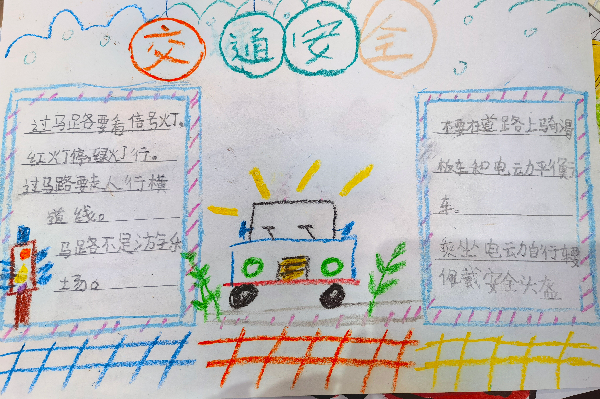 交通安全
过马路要看信号灯。
红灯停,绿灯行。
过马路要走人行横
道线。
马路不是游乐
土场。
不要在道路上骑滑
板车和电动平衡
车。
乘坐电动自行车要
佩戴安全头盔